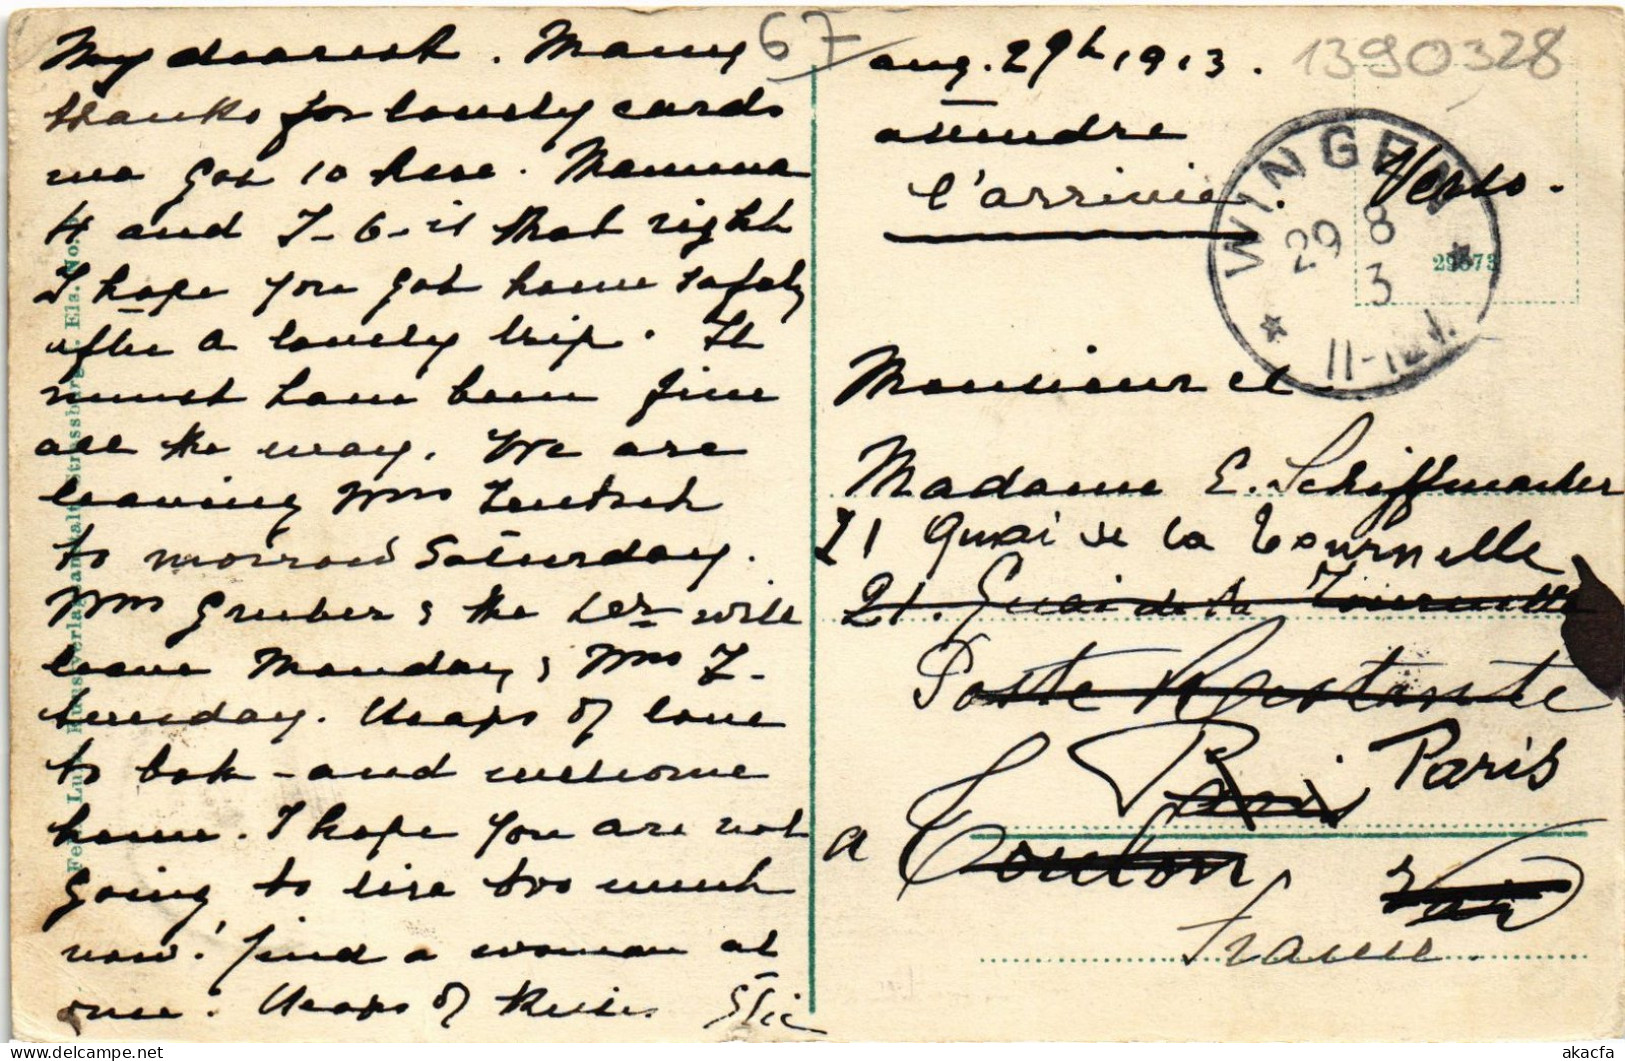 My dearest. Many
thanks for lovely cards
we got 10 here. Mamma
4 and I-6-is that right
I hope you got home safely
after a lovely trip. It
must have been fine
all the way. We are
leaving Mrs
to morrow Saturday.
Mrs Gruber & the will
leave Monday, & Mrs Z.
tuesday. Heaps of love
to both - and welcome
home. I hope you are not
going to tire too much
now! find a woman at
once! Heaps of Kisses Elsie
67
1390328
Aug. 29th 1913.
attendre
l'arrivée. Verso.
WINGEN
29 8
3
11-12V.
29873
Monsieur et
Madame E. Schiffmacher
21 Quai de la Tournelle
21. Quai de la Tournelle
Poste Restante
Paris Paris
a Toulon
France.
Els. No.
akacfa